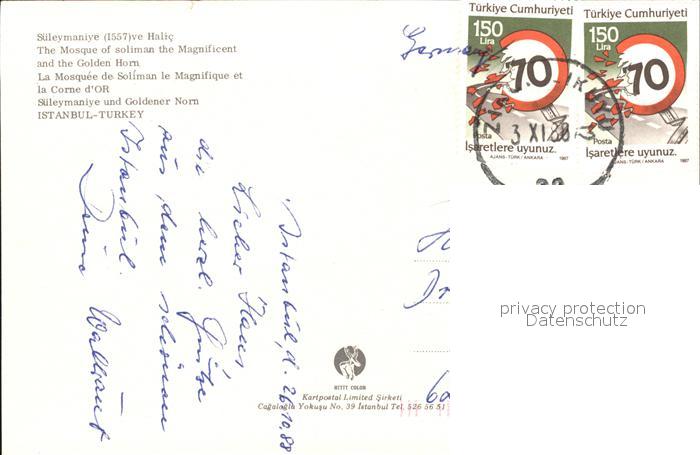 Süleymaniye (1557)ve Haliç
The Mosque of soliman the Magnificent
and the Golden Horn
La Mosquée de Soliman le Magnifique et
la Corne d'OR
Süleymaniye und Goldener Norn
ISTANBUL-TURKEY
Germany
Türkiye Cumhuriyeti
150
Lira
70
Posta
İşaretlere uyunuz.
AJANS-TÜRK/ANKARA 1987
Türkiye Cumhuriyeti
150
Lira
70
Posta
İşaretlere uyunuz.
AJANS-TÜRK/ANKARA 1987
3 XI 88
Istanbul, d. 26.10.88
Lieber Hans,
die herzl. Grüße
aus dem schönen
Istanbul.
Deine
privacy protection
Datenschutz
HITIT COLOR
Kartpostal Limited Şirketi
Cağaloğlu Yokuşu No, 39 İstanbul Tel. 526 56 51